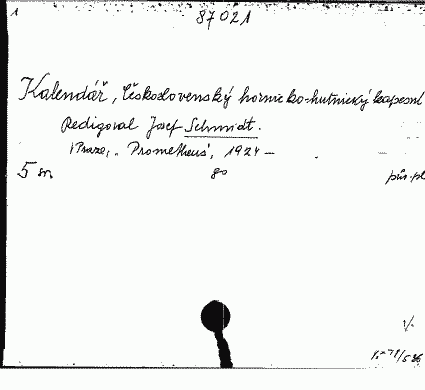 1
87021
Kalendář, Československý hornicko-hutnický kapesní
Redigoval Josef Schmidt.
Praze, „Prometheus", 1924 —
5 sv. 8°